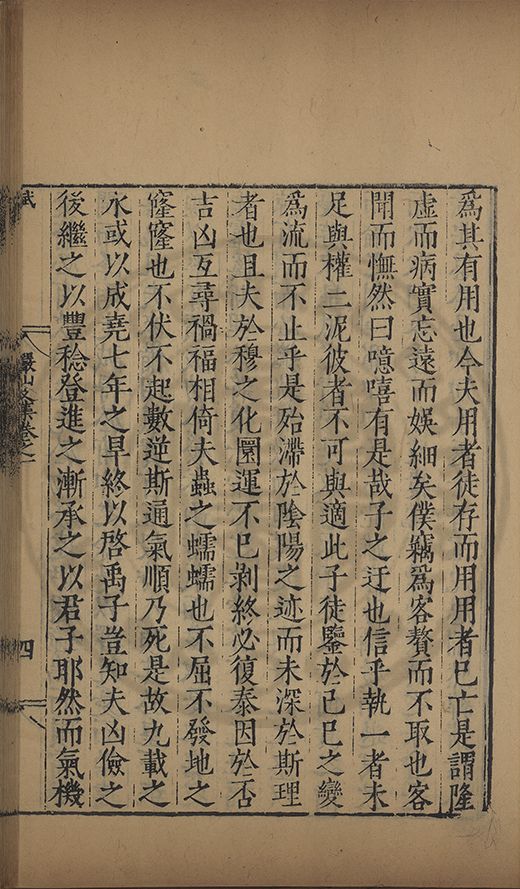 爲其有用也今夫用者徒存而用用者已亡是謂隆
虛而病實忘遠而娛細矣僕竊爲客贅而不取也客
聞而憮然曰噫嘻有是哉子之迂也信乎執一者未
足與權二泥彼者不可與適此子徒鑒於己巳之變
爲流而不止乎是殆滯於陰陽之迹而未深於斯理
者也且夫於穆之化圜運不已剥終必復泰因於否
吉凶互尋禍福相倚夫蟲之蠕蠕也不屈不發地之
窿窿也不伏不起數逆斯通氣順乃死是故九載之
水或以成堯七年之旱終以啓禹子豈知夫凶儉之
後繼之以豐稔登進之漸承之以君子耶然而氣機
賦
儼山文集卷之一
四